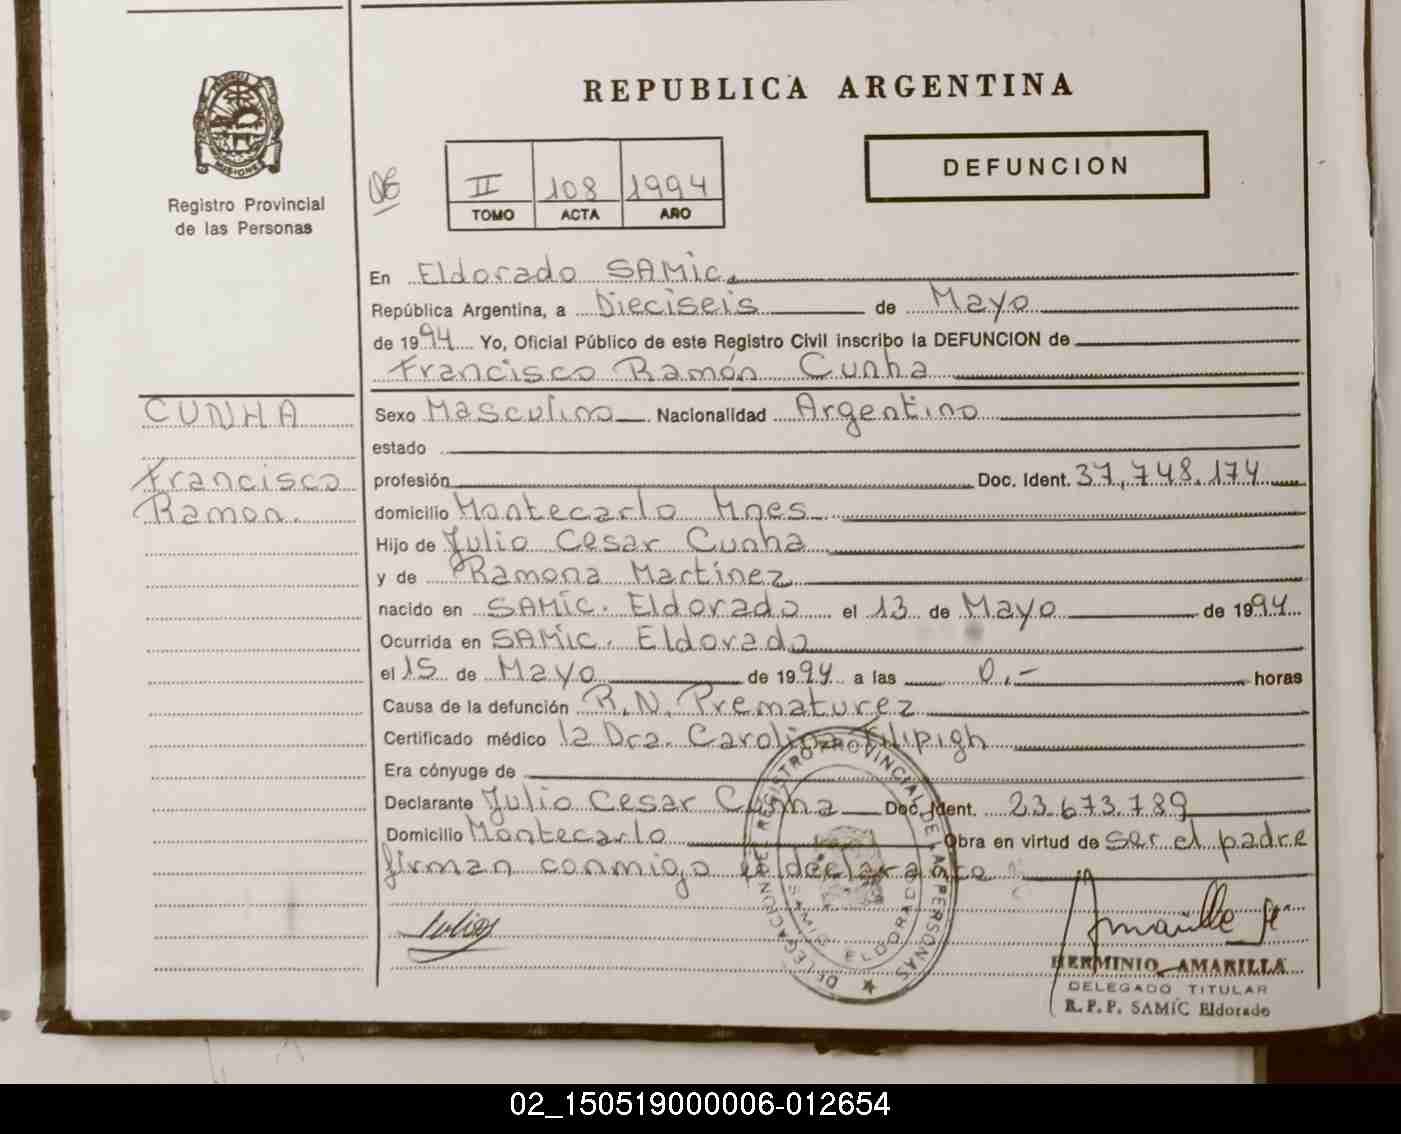 REPUBLICA ARGENTINA
MISIONES
Registro Provincial
de las Personas
DEFUNCION
II 108 1994
TOMO ACTA AÑO
En Eldorado SAMic.
República Argentina, a Dieciseis de Mayo
de 1994 Yo, Oficial Público de este Registro Civil inscribo la DEFUNCION de
Francisco Ramón Cunha
CUNHA
Francisco
Ramon.
Sexo Masculino Nacionalidad Argentino
estado
profesión Doc. Ident. 37,748.174
domicilio Montecarlo Mnes
Hijo de Julio Cesar Cunha
y de Ramona Martínez
nacido en SAMíc. Eldorado el 13 de Mayo de 1994
Ocurrida en SAMic. Eldorado
el 15 de Mayo de 1994 a las 0,- horas
Causa de la defunción R.N. Prematurez
Certificado médico la Dra. Carolina Filipigh
Era cónyuge de
Declarante Julio Cesar Cunha Doc. Ident. 23.673.789
Domicilio Montecarlo Obra en virtud de ser el padre
firman conmigo el declarante
DELEGACION DE REGISTRO PROVINCIAL DE LAS PERSONAS
SAMIC ELDORADO
HERMINIO AMARILLA
DELEGADO TITULAR
R.P.P. SAMÍC Eldorado
02_150519000006-012654